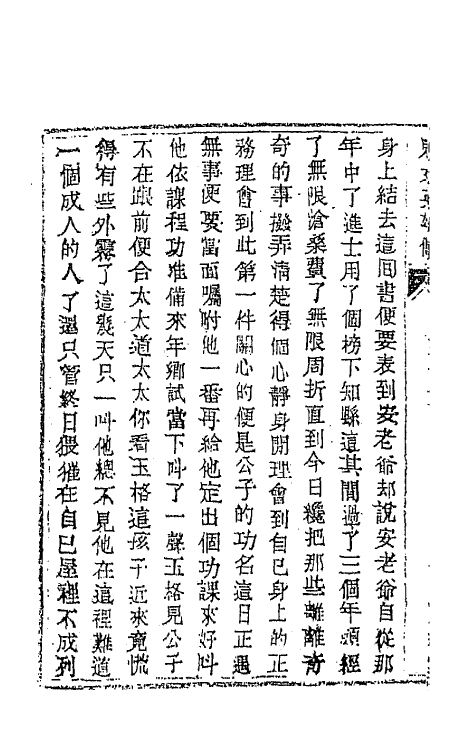 身上結去這回書便要表到安老爺却說安老爺自從那
年中了進士用了個榜下知縣這其間過了三個年頭經
了無限滄桑費了無限周折直到今日纔把那些離離奇
奇的事撥弄清楚得個心靜身閒理會到自己身上的正
務理會到此第一件關心的便是公子的功名這日正遇
無事便要當面囑咐他一番再給他定出個功課來好叫
他依課程功准備來年鄉試當下叫了一聲玉格見公子
不在跟前便合太太道太太你看玉格這孩子近來竟慌
得有些外務了這幾天只一叫他總不見他在這裡難道
一個成人的人了還只管終日猥獕在自己屋裡不成列